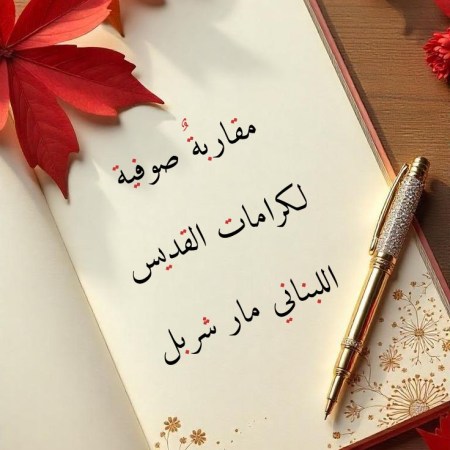 مقاربةٌ صوفية
لكرامات القديس
اللبناني مار شربل